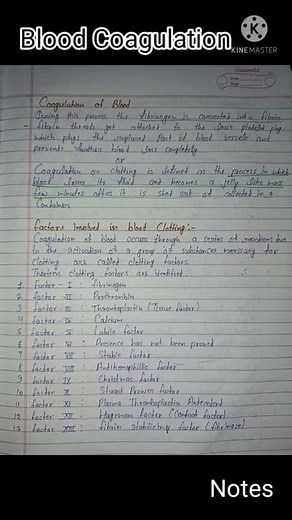 Blood Coagulation
KINEMASTER
Classmate
Date
Page
Coagulation of Blood
During this process the fibrinogen is converted into fibrin.
- fibrin threads get attached to the loose platelet plug
which plugs the ruptured part of blood vessels and
prevents further blood loss completely
OR
Coagulation or clotting is defined as the process in which
blood looses its fluid and becomes a jelly like mass
few minutes after it is shed out or collected in a
Container.
Factors involved in blood Clotting:-
Coagulation of blood occurs through a series of reactions due
to the activation of a group of substances necessary for
clotting are called clotting factors.
Thirteen clotting factors are identified
1 factor - I : fibrinogen
2 factor - II : Prothrombin
3 factor - III : Thromboplastin (Tissue factor)
4 factor - IV : Calcium
5 factor - V : Labile factor
6 factor VI : Presence has not been proved
7 factor VII : Stable factor
8 factor VIII : Antihemophilic factor
9 factor IX : Christmas factor
10 factor X : Stuart Prower factor
11 factor XI : Plasma Thromboplastin Antecedent
12 factor XII : Hageman factor (Contact factor)
13 factor XIII : fibrin stabilizing factor (fibrinase)
Notes